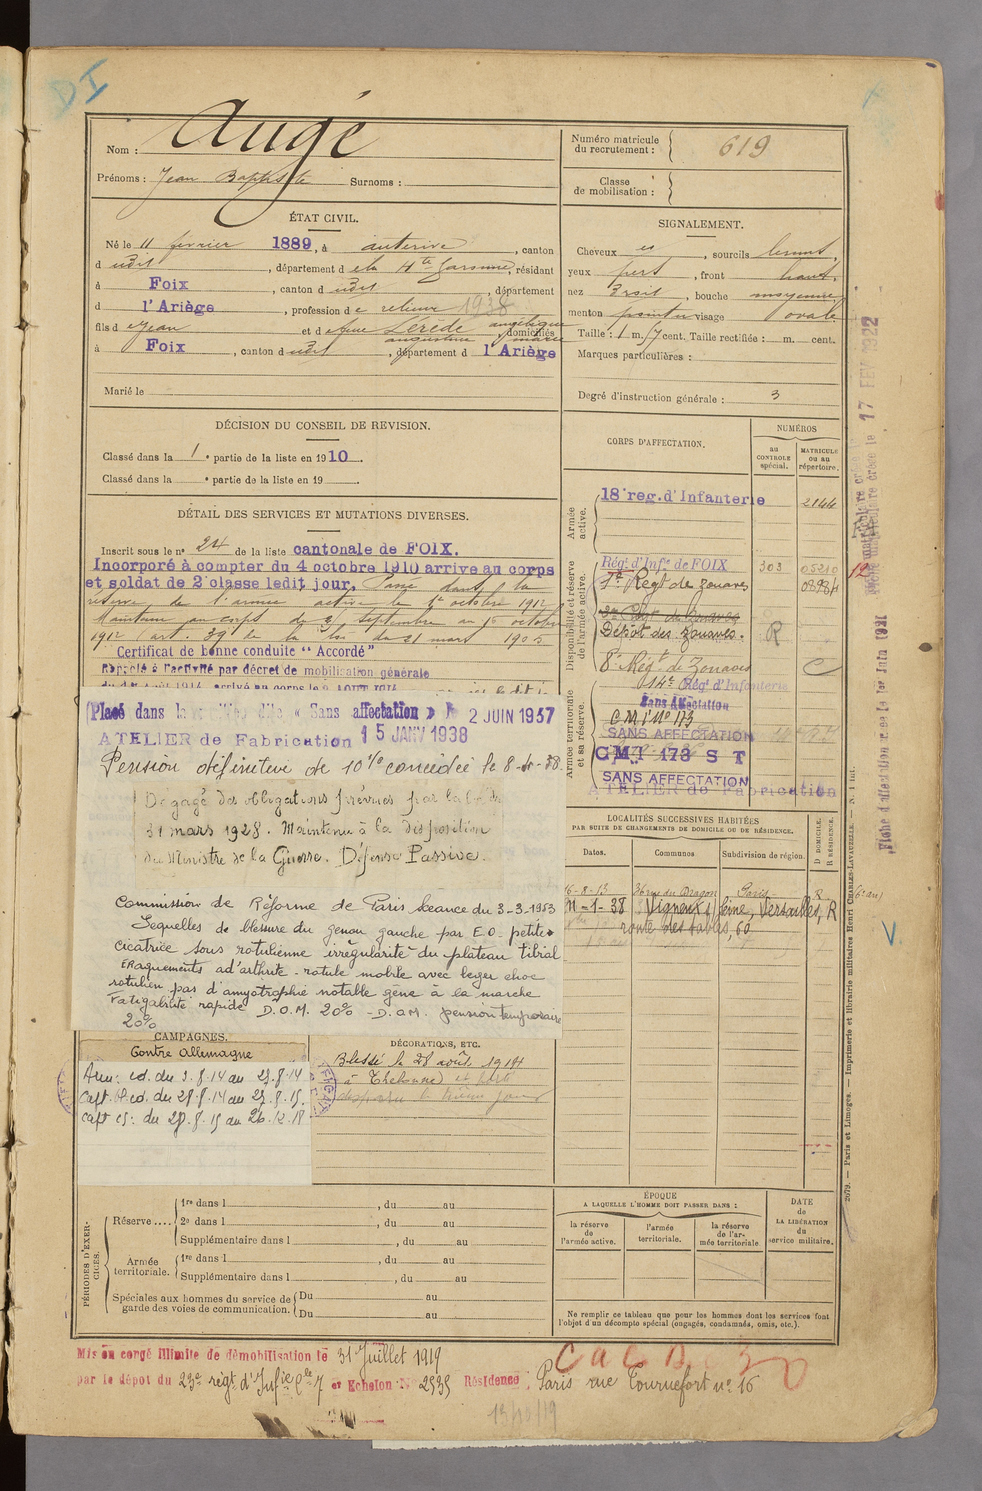 DI
Nom : Augé
Prénoms : Jean Baptiste Surnoms :
Numéro matricule du recrutement : 619
Classe de mobilisation :
ÉTAT CIVIL.
Né le 11 février 1889, à auterive, canton
d udit, département d e la Hte Garonne, résidant
à Foix, canton d udit, département
d l'Ariège, profession d e relieur 1938
fils d e Jean et d e Lérède angélique augustine marie, domiciliés
à Foix, canton d udit, département d l'Ariège
Marié le
SIGNALEMENT.
Cheveux et, sourcils bruns,
yeux pers, front haut,
nez droit, bouche moyenne,
menton pointu visage ovale
Taille : 1 m. 7 cent. Taille rectifiée : m. cent.
Marques particulières :
Degré d'instruction générale : 3
DÉCISION DU CONSEIL DE REVISION.
Classé dans la 1e partie de la liste en 1910.
Classé dans la e partie de la liste en 19 .
DÉTAIL DES SERVICES ET MUTATIONS DIVERSES.
Inscrit sous le no 24 de la liste cantonale de FOIX.
Incorporé à compter du 4 octobre 1910 arrive au corps
et soldat de 2e classe ledit jour. Passé dans la
réserve de l'armée active le 1er octobre 1912
Maintenu au corps du 2 Septembre au 1er octobre
1912 (art. 39 de la loi du 21 mars 1905
Certificat de bonne conduite "Accordé"
Rappelé à l'activité par décret de mobilisation générale
Placé dans la dite « Sans affectation » le 2 JUIN 1937
ATELIER de Fabrication 15 JANV 1938
Pension définitive de 10% concedée le
Dégagé des obligations prévues par la loi du
31 mars 1928. Maintenu à la disposition
du Ministre de la Guerre. Défense Passive.
Commission de Réforme de Paris Séance du 3-3-1953
Sequelles de blessure du genou gauche par E.O. petite
cicatrice sous rotulienne irrégularité du plateau tibial
craquements d'arthrite - rotule mobile avec leger choc
rotulien pas d'amyotrophie notable gêne à la marche
Fatigabilité rapide D.O.M. 20% - D.a.M. pension temporaire
20%
CORPS D'AFFECTATION.
NUMÉROS
au CONTROLE spécial.
MATRICULE ou au répertoire.
Armée active.
18e reg. d'Infanterie 2144
Disponibilité et réserve de l'armée active.
Rég. d'Inf. de FOIX 303 05210
1er Regt de Zouaves
Dépôt des Zouaves. R
8e Régt de Zouaves C
Armée territoriale et sa réserve.
14e Rég. d'Infanterie
Sans Affectation
CMI No 173
SANS AFFECTATION
CMI 173 S T
SANS AFFECTATION
ATELIER de Fabrication
LOCALITÉS SUCCESSIVES HABITÉES
PAR SUITE DE CHANGEMENTS DE DOMICILE OU DE RÉSIDENCE.
Dates. Communes Subdivision de région. D DOMICILE. R RÉSIDENCE.
16-8-13 36 rue du Dragon Paris R (6e arr)
11-1-38 Vigneux s/ Seine, Versailles, R
route des sables, 60
CAMPAGNES.
Contre Allemagne
Aux: cd. du 3.8.14 au 27.8.14
Capt. Bl. cd. du 28.8.14 au 27.8.15.
Capt cs: du 28.8.15 au 26.12.18
DÉCORATIONS, ETC.
Blessé le 28 août 1914
à Thelonne et porté
disparu le même jour
PÉRIODES D'EXERCICES.
Réserve ....
1re dans l , du au
2e dans l , du au
Supplémentaire dans l , du au
Armée territoriale.
1re dans l , du au
Supplémentaire dans l , du au
Spéciales aux hommes du service de garde des voies de communication.
Du au
Du au
ÉPOQUE
A LAQUELLE L'HOMME DOIT PASSER DANS :
la réserve de l'armée active.
l'armée territoriale.
la réserve de l'armée territoriale
DATE de LA LIBÉRATION du service militaire.
Ne remplir ce tableau que pour les hommes dont les services font
l'objet d'un décompte spécial (engagés, condamnés, omis, etc.).
Mis en congé illimité de démobilisation le 31 Juillet 1919
par le dépot du 23e régt d'Infie Cie 7 et Echelon No 2535 Résidence : Paris rue Tournefort no 16
13/10/19
17 FEV 1922
Fiche d'affectation créée le 1er Juin 1931
2079. — Paris et Limoges. — Imprimerie et librairie militaires Henri CHARLES-LAVAUZELLE. — N. 1 int.